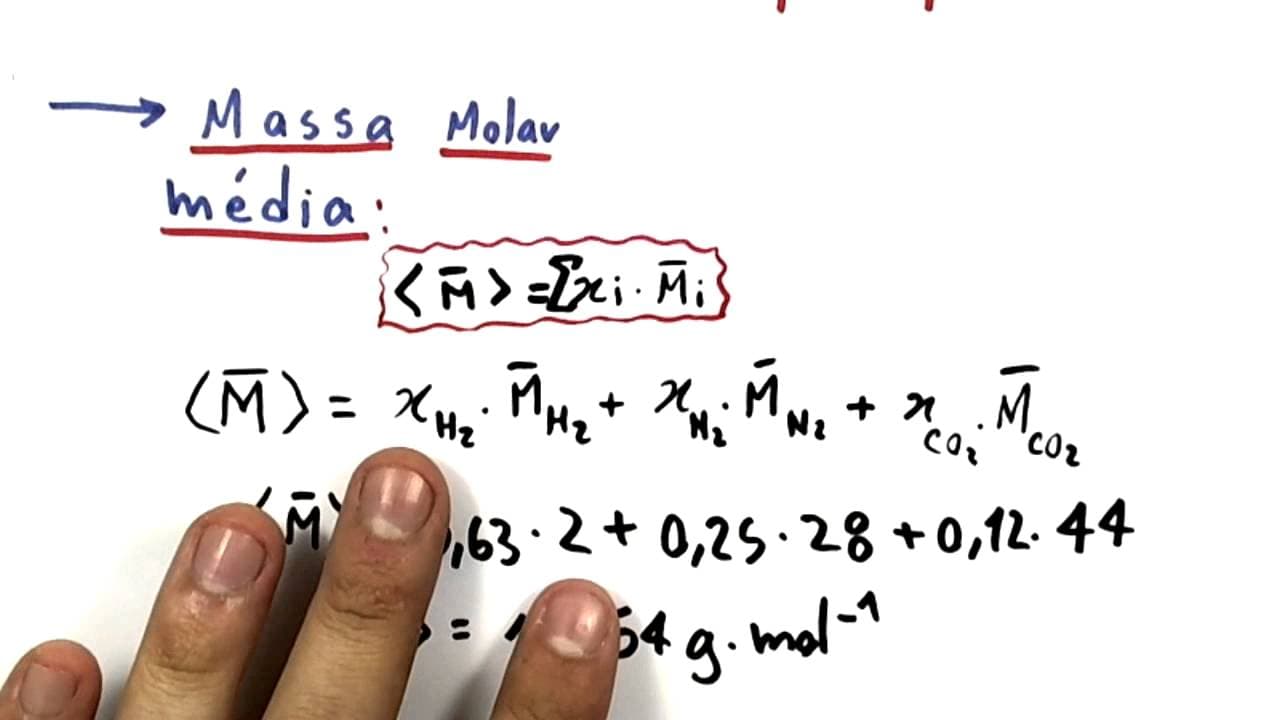 → Massa Molar
média:
⟨M̄⟩ = Σxi · M̄i
⟨M̄⟩ = xH₂ · M̄H₂ + xN₂ · M̄N₂ + xCO₂ · M̄CO₂
⟨M̄ ,63 · 2 + 0,25 · 28 + 0,12 · 44
= 54 g · mol⁻¹